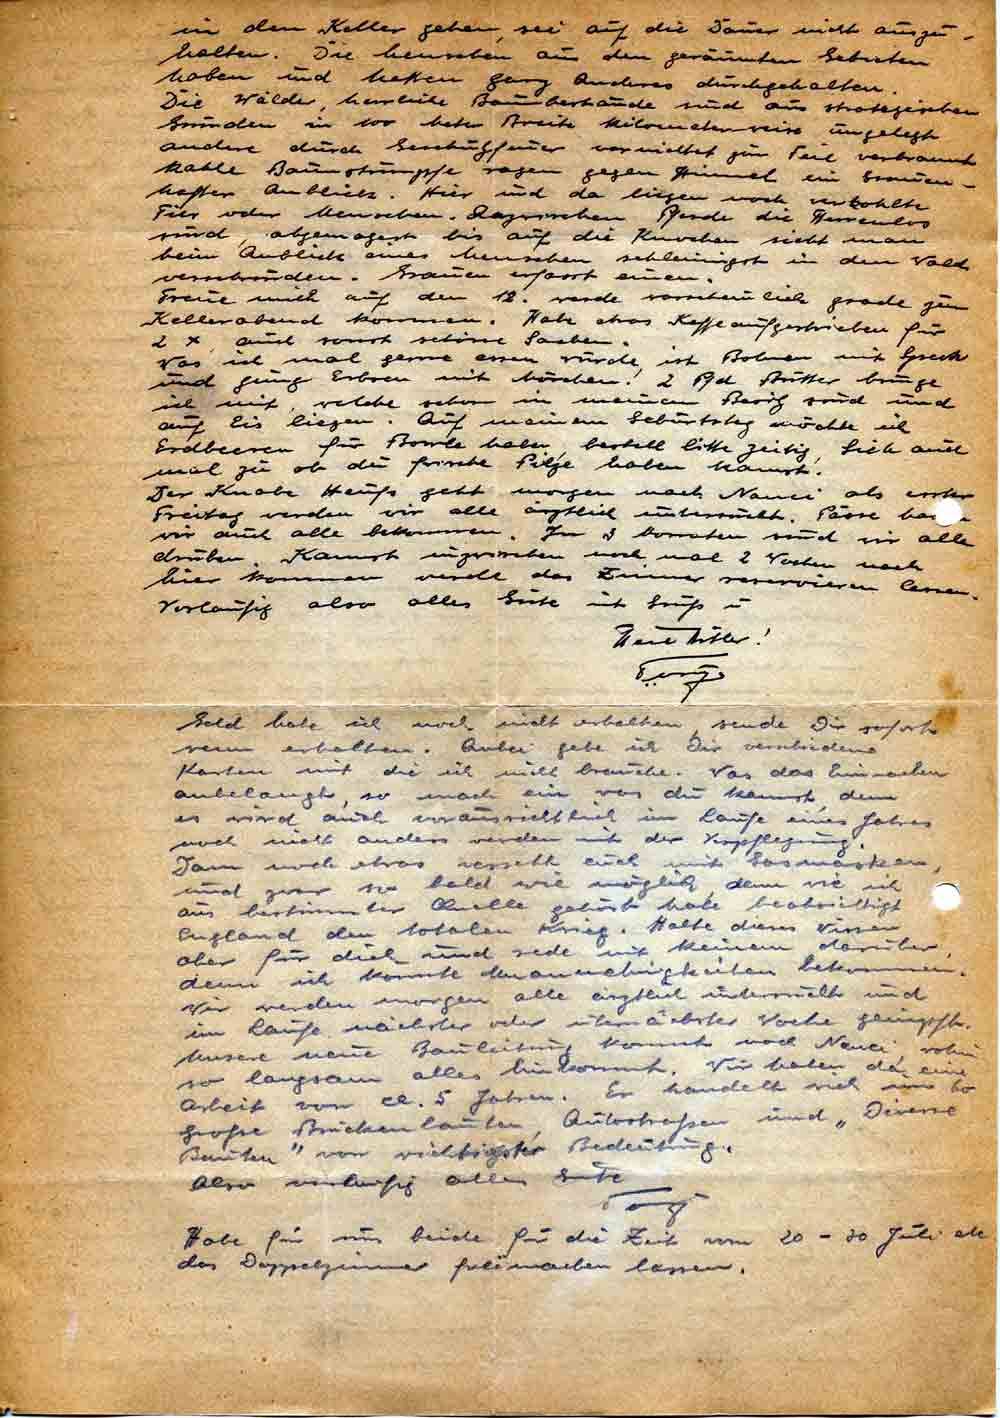 in den Keller gehen, sei auf die Dauer nicht auszu-
halten. Die Menschen aus den geräumten Gebieten
haben und hatten ganz Anderes durchgehalten.
Die Wälder, herrliche Baumbestände sind aus strategischen
Gründen in 100 Meter Breite Kilometer-weise umgelegt
andere durch Geschützfeuer vernichtet zum Teil verbrannt
kahle Baumstrümpfe ragen gegen Himmel ein Grauen-
hafter Anblick. Hier und da liegen noch verkohlte
Tier oder Menschen. Dazwischen Pferde die Herrenlos
sind, abgemagert bis auf die Knochen sieht man
beim Anblick eines Menschen schleinigst in den Wald
verschwinden. Grauen erfasst einen.
Freue mich auf den 12. werde warscheinlich grade zum
Kellerabend kommen. Habe etwas Kaffe aufgetrieben für
2 x auch sonst schöne Sachen.
Was ich mal gerne essen würde, ist Bohnen mit Speck
und junge Erbsen mit Mörchen! 2 Pfd Butter bringe
ich mit, welche schon in meinem Besitz sind und
auf Eis liegen. Auf meinem Geburtstag möchte ich
Erdbeeren für Bowle haben, bestell bitte zeitig, Sieh auch
mal zu ob du frische Pilze haben kannst.
Der Knabe geht morgen nach Nanci als erster
Freitag werden wir alle ärztlich untersucht. Pässe
wir auch alle bekommen. In 3 Monaten sind wir alle
drüben. Kannst inzwischen noch mal 2 Wochen nach
hier kommen werde das Zimmer reservieren lassen.
Vorläufig also alles Gute mit Gruß u
Heil Hitler!
Geld habe ich noch nicht erhalten, sende Dir sofort
wenn erhalten. Anbei gebe ich Dir verschiedene
Karten mit die ich nicht brauche. Was das Einmachen
anbelangt, so mach ein was du kannst, denn
es wird auch voraussichtlich im Laufe eines Jahres
noch nicht anders werden mit der Verpflegung.
Dann noch etwas verseht euch mit Gasmasken,
und zwar so bald wie möglich, denn wie ich
aus bestimmter Quelle gehört habe beabsichtigt
England den totalen Krieg. Halte dieses Wissen
aber für dich und rede mit keinem darüber,
denn ich könnte Unannehmigkeiten bekommen.
Wir werden morgen alle ärztlich untersucht und
im Laufe nächster oder übernächster Woche geimpft.
Unsere neue Bauleitung kommt nach Nanci, wohin
so langsam alles hinkommt. Wir haben da eine
Arbeit von ca. 5 Jahren. Er handelt sich um
große Brückenbauten, Autostraßen und „Diverse
Bauten" von wichtigster Bedeutung.
Also vorläufig alles Gute
Habe für uns beide für die Zeit vom 20 - 30 Juli
das Doppelzimmer freimachen lassen.